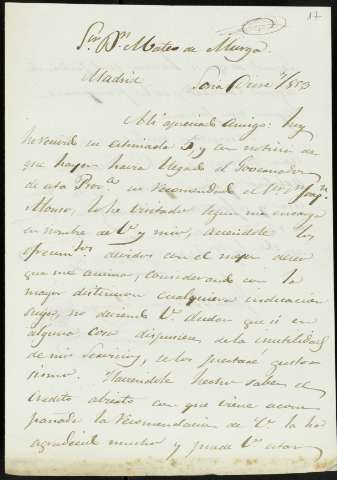 17
Sor. Dn. Mateo de Murga.
Madrid Soria 7/853
Mi apreciado Amigo: hoy
he recivido su estimada 5, y con noticia de
que hayer havia llegado el Governador
de esta Prova. su recomendado el Sor. Dn. Joaqn.
Alonso, le he visitado segun me encarga
en nombre de V. y mio, haciendole los
ofrecimtos. devidos con el mejor deseo
que me anima, considerando con la
mayor distincion cualquiera indicacion
suya, no deviendo V. dudar que si en
alguna cosa dispusiere de la inutilidad
de mis servicios, se los prestaré gustos
isimo. Haviendole hecho saber el
credito abierto con que viene acom
pañada la recomendacion de V. la ha
agradecido mucho y puede V. estar